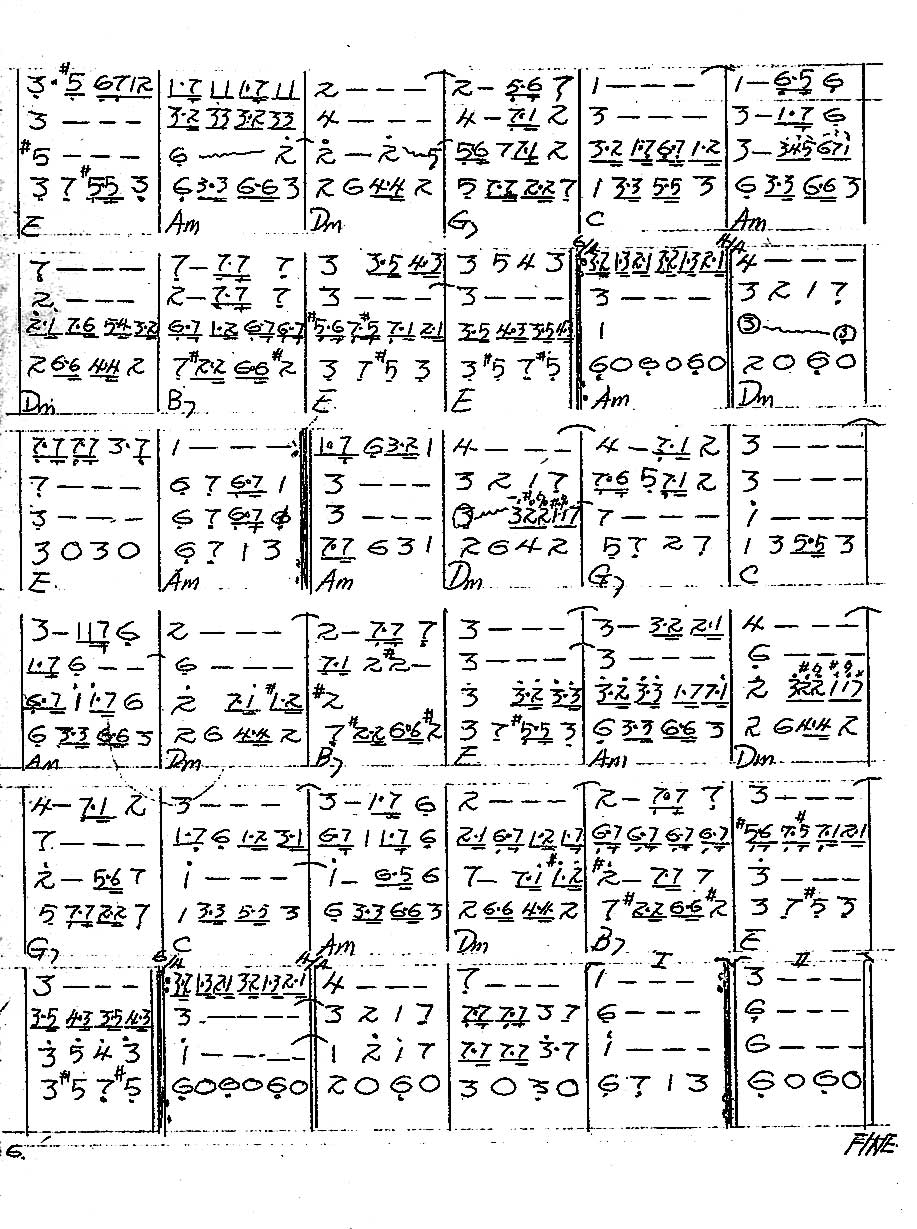 3·#5 6712 | 1·7 11 1·7 11 | 2 – – – | 2 – 5·6 7 | 1 – – – | 1 – 6·5 6
3 – – – | 3·2 33 3·2 33 | 4 – – – | 4 – 7·1 2 | 3 – – – | 3 – 1·7 6
#5 – – – | 6 – 2 | 2 – 2 5 | 56 7 7·1 2 | 3·2 1·7 6·7 1·2 | 3 – 345 671
3 7 #55 3 | 6 3·3 6·6 3 | 2 6 4·4 2 | 5 7·7 2·2 7 | 1 3·3 5·5 3 | 6 3·3 6·6 3
E Am Dm G7 C Am
6/4 4/4
7 – – – | 7 – 7·7 7 | 3 3·5 4·3 | 3 5 4 3 | 3·2 1·3 2·1 3·2 1·3 2·1 | 4 – – –
2 – – – | 2 – 7·7 7 | 3 – – – | 3 – – – | 3 – – – | 3 2 1 7
2·1 7·6 54 3·2 | 6·7 1·2 6·7 6·7 | #5·6 7·#5 7·1 2·1 | 3·5 4·3 3·5 4·3 | 1 | 3 3
2 6·6 4·4 2 | 7 #2·2 6·6 #2 | 3 7 #5 3 | 3 #5 7 #5 | 6 0 6 0 6 0 | 2 0 6 0
Dm B7 E E Am Dm
7·7 7·7 3·7 | 1 – – – | 1·7 6 3·2 1 | 4 – – – | 4 – 7·1 2 | 3 – – –
7 – – – | 6 7 6·7 1 | 3 – – – | 3 2 1 7 | 7·6 5 7·1 2 | 3 – – –
3 – – – | 6 7 6·7 6 | 3 – – – | 3 322117 | 7 – – – | 1 – – –
3 0 3 0 | 6 7 1 3 | 7·7 6 3 1 | 2 6 4 2 | 5 7 2 7 | 1 3 5·5 3
E Am Am Dm G7 C
3 – 117 6 | 2 – – – | 2 – 7·7 7 | 3 – – – | 3 – 3·2 2·1 | 4 – – –
1·7 6 – – | 6 – – – | 7·1 2 #2 – | 3 – – – | 3 – – – | 6 – – –
6·7 1 1·7 6 | 2 7·1 #1·2 | #2 | 3 3·2 3·3 | 3·2 3·3 1·7 7·1 | 2 322117
6 3·3 6·6 3 | 2 6 4·4 2 | 7 #2·2 6·6 #2 | 3 7 #5·5 3 | 6 3·3 6·6 3 | 2 6 4·4 2
Am Dm B7 E Am Dm
4 – 7·1 2 | 3 – – – | 3 – 1·7 6 | 2 – – – | 2 – 7·7 7 | 3 – – –
7 – – – | 1·7 6 1·2 3·1 | 6·7 1 1·7 6 | 2·1 6·7 1·2 1·7 | 6·7 6·7 6·7 6·7 | #5·6 7·#5 7·1 2·1
2 – 5·6 7 | 1 – – – | 1 – 6·5 6 | 7 – 7·1 #1·2 | #2 – 7·7 7 | 3 – – –
5 7·7 2·2 7 | 1 3·3 5·5 3 | 6 3·3 6·6 3 | 2 6·6 4·4 2 | 7 #2·2 6·6 #2 | 3 7 #5 3
G7 C Am Dm B7 E
6/4 4/4 I II
3 – – – | 3·2 1·3 2·1 3·2 1·3 2·1 | 4 – – – | 7 – – – | 1 – – – | 3 – – –
3·5 4·3 3·5 4·3 | 3 – – – – | 3 2 1 7 | 7·7 7·7 3 7 | 6 – – – | 6 – – –
3 5 4 3 | 1 – – – – | 1 2 1 7 | 7·7 7·7 3·7 | 1 – – – | 6 – – –
3 #5 7 #5 | 6 0 6 0 6 0 | 2 0 6 0 | 3 0 3 0 | 6 7 1 3 | 6 0 6 0
6. FINE